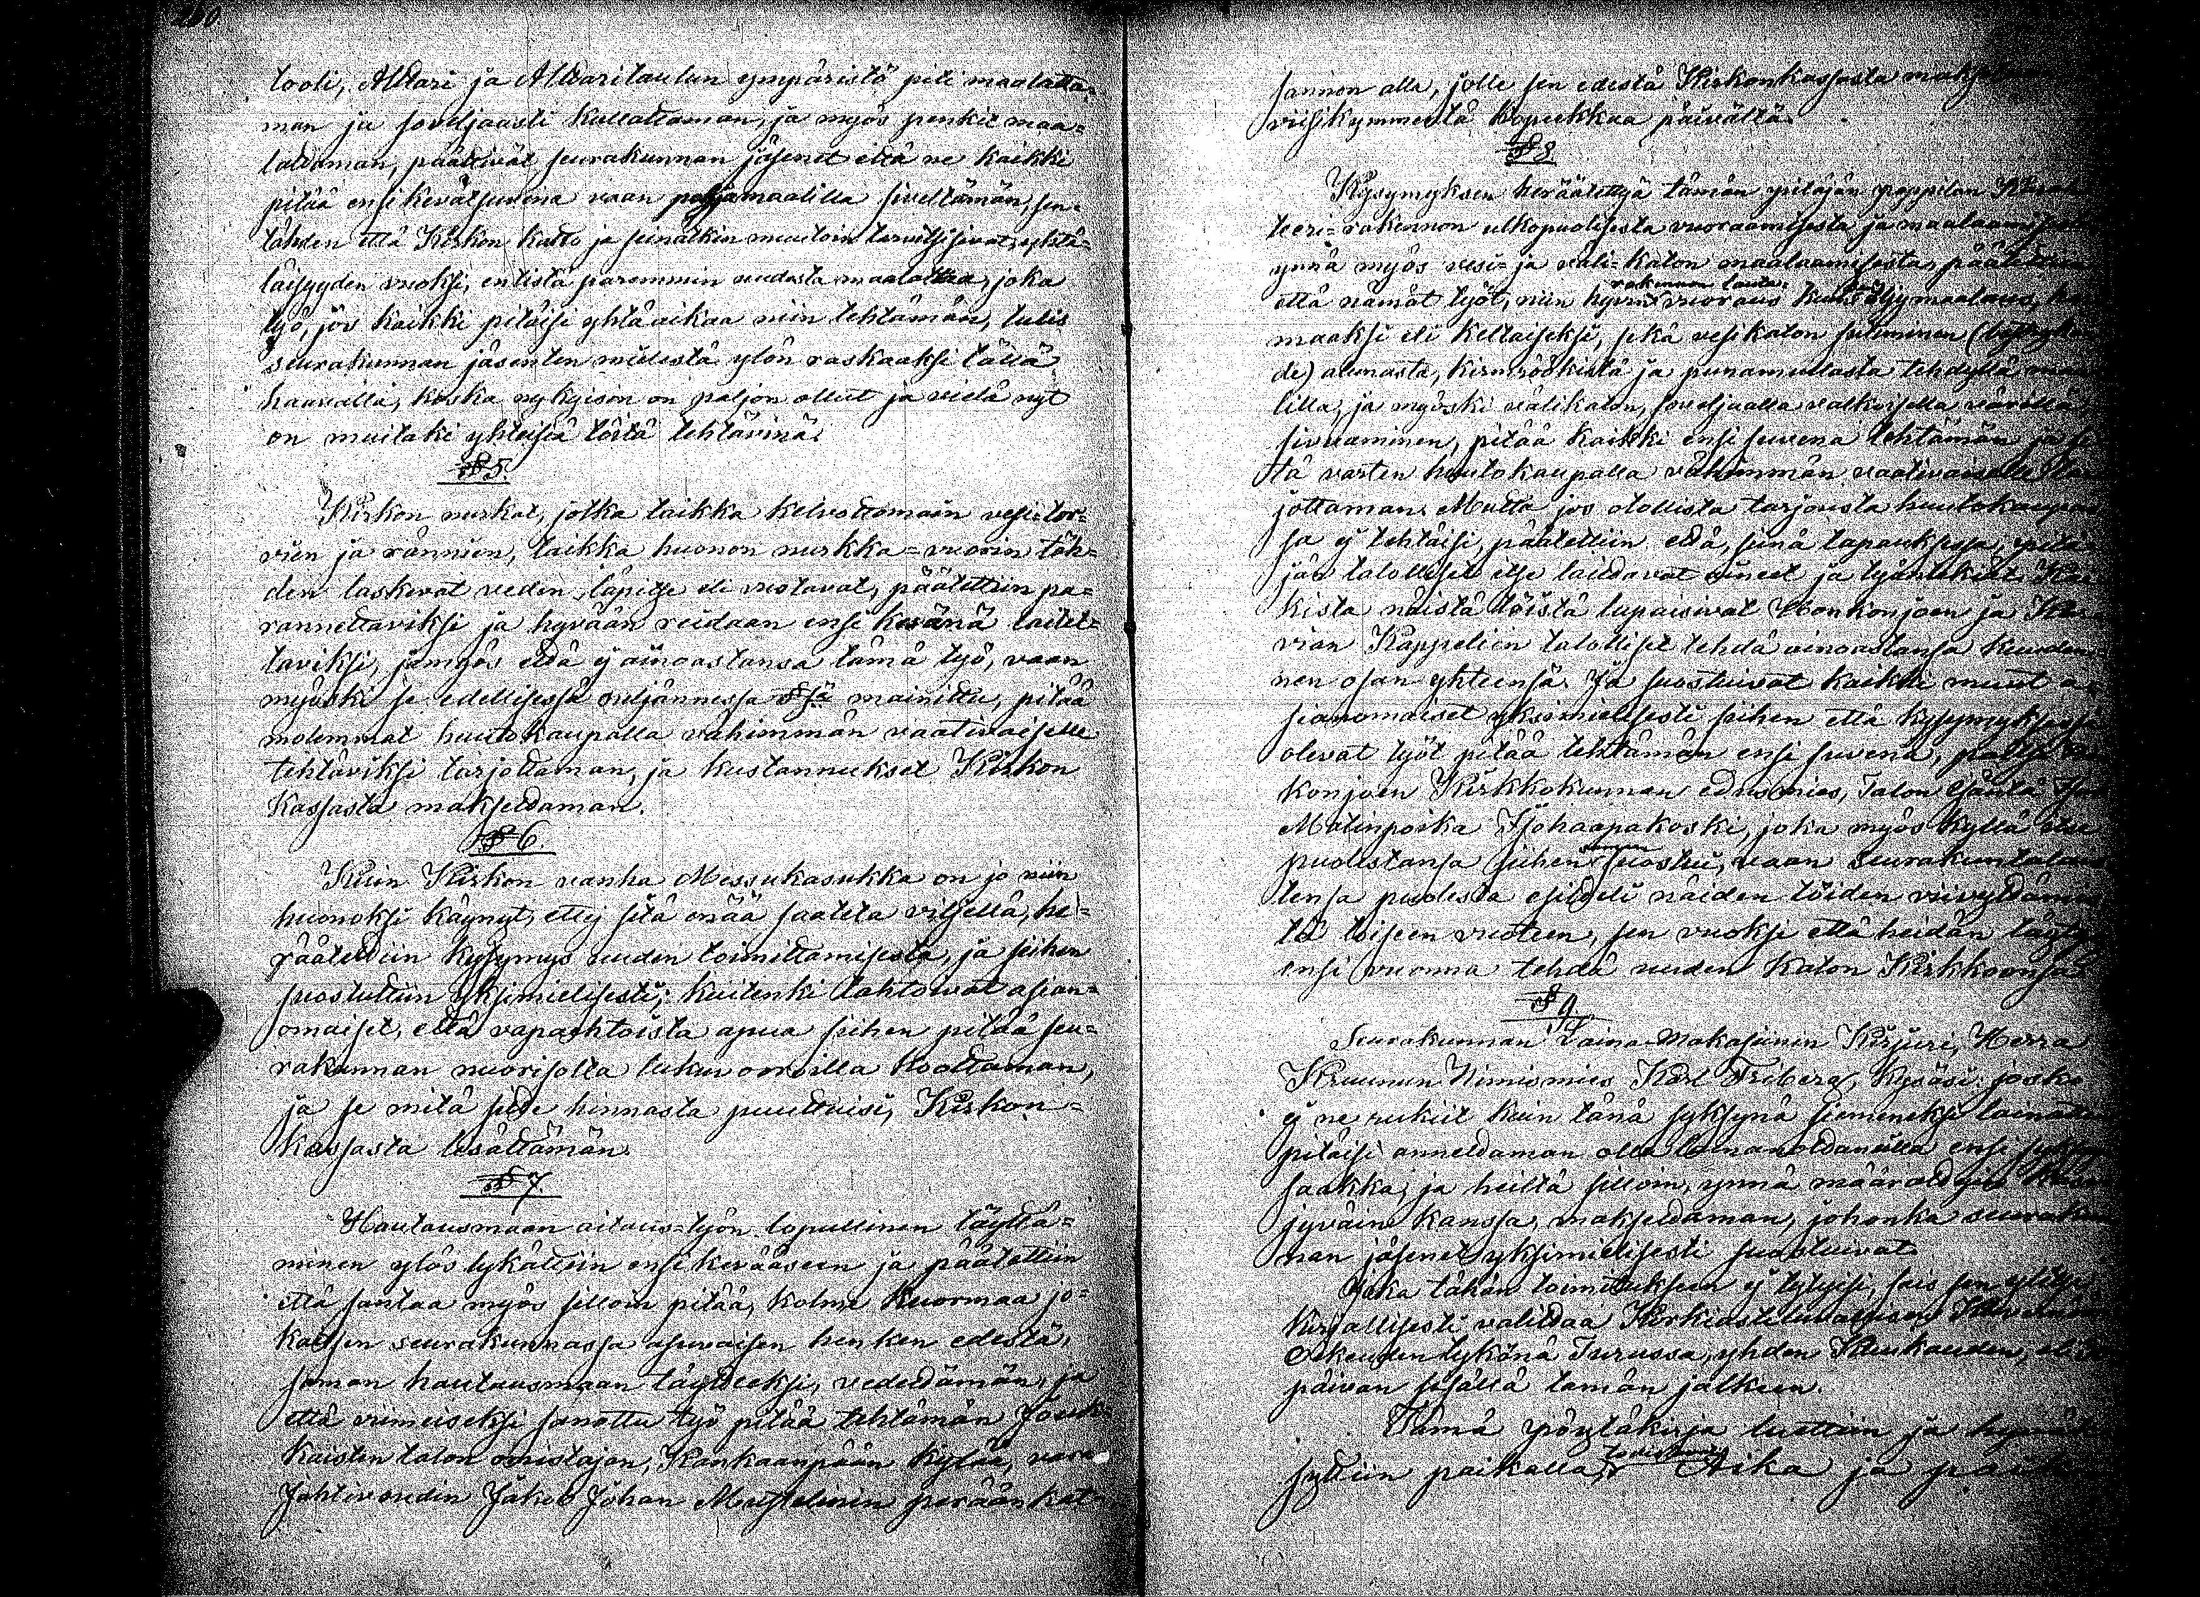 260
tooli, Altari ja Altaritaulun ympäristö piti maalatta=
man ja soveljaasti kullattaman, ja myös penkit maa=
lattaman, päättivät seurakunnan jäsenet että ne kaikki
pitää ensi kevätsuvena vaan pohjamaalilla siveltämän, sen=
tähden että Kirkon katto ja seinätkin muutoin tarvitsisivat, yhtä=
läisyyden vuoksi, entistä paremmin uudesta maalattaa, joka
työ, jos kaikki pitäisi yhtä aikaa niin tehtämän, tulis
seurakunnan jäsenten mielestä ylön raskaaksi tällä
haavalla, koska nykyisin on paljon ollut ja vielä nyt
on muitaki yhteisiä töitä tehtävinä.
§ 5.
Kirkon nurkat, jotka taikka kelvottomain vesi=tor=
vien ja rännien, taikka huonon nurkka=vuorin täh=
den laskevat veden läpitse eli vuotavat, päätettiin pa=
rannettaviksi ja hyvään reidaan ensi kevänä laitet=
taviksi, jämyös että ej ainoastansa tämä työ, vaan
myöski se edellisessä neljännessä §:ssä mainittu, pitää
molemmat huutokaupalla vähimmän vaativaiselle
tehtäviksi tarjottaman, ja kustannukset Kirkon
Kassasta maksettaman.
§ 6.
Kuin Kirkon vanha Messukasukka on jo niin
huonoksi käynyt, ettej sitä enää saateta viljellä, he=
räätettiin kysymys uuden toimittamisesta, ja siihen
suostuttiin yksimielisesti; kuitenki tahtoivat asian=
omaiset, että vapaehtoista apua siihen pitää seu=
rakunnan nuorisolta lukuvuoroilla koottaman,
ja se mitä siitä hinnasta puuttuisi, Kirkon=
kassasta lisättämän.
§ 7.
Hautausmaan aitaus=työn lopullinen täyttä=
minen ylös lykättiin ensi kevääseen ja päätettiin
että santaa myös silloin pitää, kolme kuormaa jo=
kaisen seurakunnassa asuvaisen henken edestä,
saman hautausmaan täytteeksi, vedettämän, ja
että viimeiseksi sanottu työ pitää tehtämän Jouk=
kaisten talon omistajan, Kankaanpään kylää, vara
Jahtivoudin Jakob Johan perään kat=
sannon alla, jolle sen edestä Kirkonkassasta
viisikymmentä kopeekkaa päivältä.
§ 8.
Kysymyksen heräätettyä tämän pitäjän pappilan
teeri=rakennon ulkopuolisesta vuoraamisesta ja
ynnä myös vesi= ja väli=katon maalaamisesta, päätettiin
että nämät työt, niin hyvin rakennon lauta= vuoraus kuin öljymaalaus,
maaksi eli keltaiseksi, sekä vesikaton sutiminen
de) alunasta, kimröökistä ja punamullasta tehdyllä maa
lilla, ja myöski välikaton, soveljaalla valkoisella värillä
sivuaminen, pitää kaikki ensi suvena tehtämän ja
tä varten huutokaupalla vähimmän vaativaiselle tar
jottaman. Mutta jos otollista tarjousta huutokaupas
sa ej tehtäisi, päätettiin että, siinä tapauksessa, pitä
jän talolliset itse laittavat aineet ja työntekiät.
kista näistä töistä lupaisivat Honkonjoen ja Kar
vian Kappelein talolliset tehdä ainoastansa kuuden
nen osan yhteensä. Ja suostuivat kaikki muut a
sianomaiset yksimielisesti siihen että kysymyksessä
olevat työt pitää tehtämän ensi suvena, paitsi
konjoen Kirkkokunnan edusmies, Talon Isäntä
Matinpoika Isohaapakoski, joka myös kyllä itse
puolestansa siihen suostui, vaan seurakuntalais
tensa puolesta esitteli näiden töiden viivyttämis
tä toiseen vuoteen, sen vuoksi että heidän täytyy
ensi vuonna tehdä uuden katon Kirkkoonsa.
§ 9.
Seurakunnan Laina-Makasiinin Kirjuri, Herra
Kruunun Nimismies Karl Friberg, kysäsi: josko
ej ne rukiit kuin tänä syksynä siemeneksi lainattiin
pitäisi annettaman olla lainanottanilla ensi
saakka, ja heiltä silloin, ynnä määrättyin kasvu
jyväin kanssa, maksettaman, johonka seurakun
nan jäsenet yksimielisesti suostuivat.
Joka tähän toimitukseen ej tytyisi, sais sen ylitse
kirjallisesti valittaa
Oikeuden tykönä Turussa, yhden Kuukauden,
päivän sisällä tämän jälkeen.
Tämä pöytäkirja luettiin ja hyväk
syttiin paikalla, todistaa Aika ja